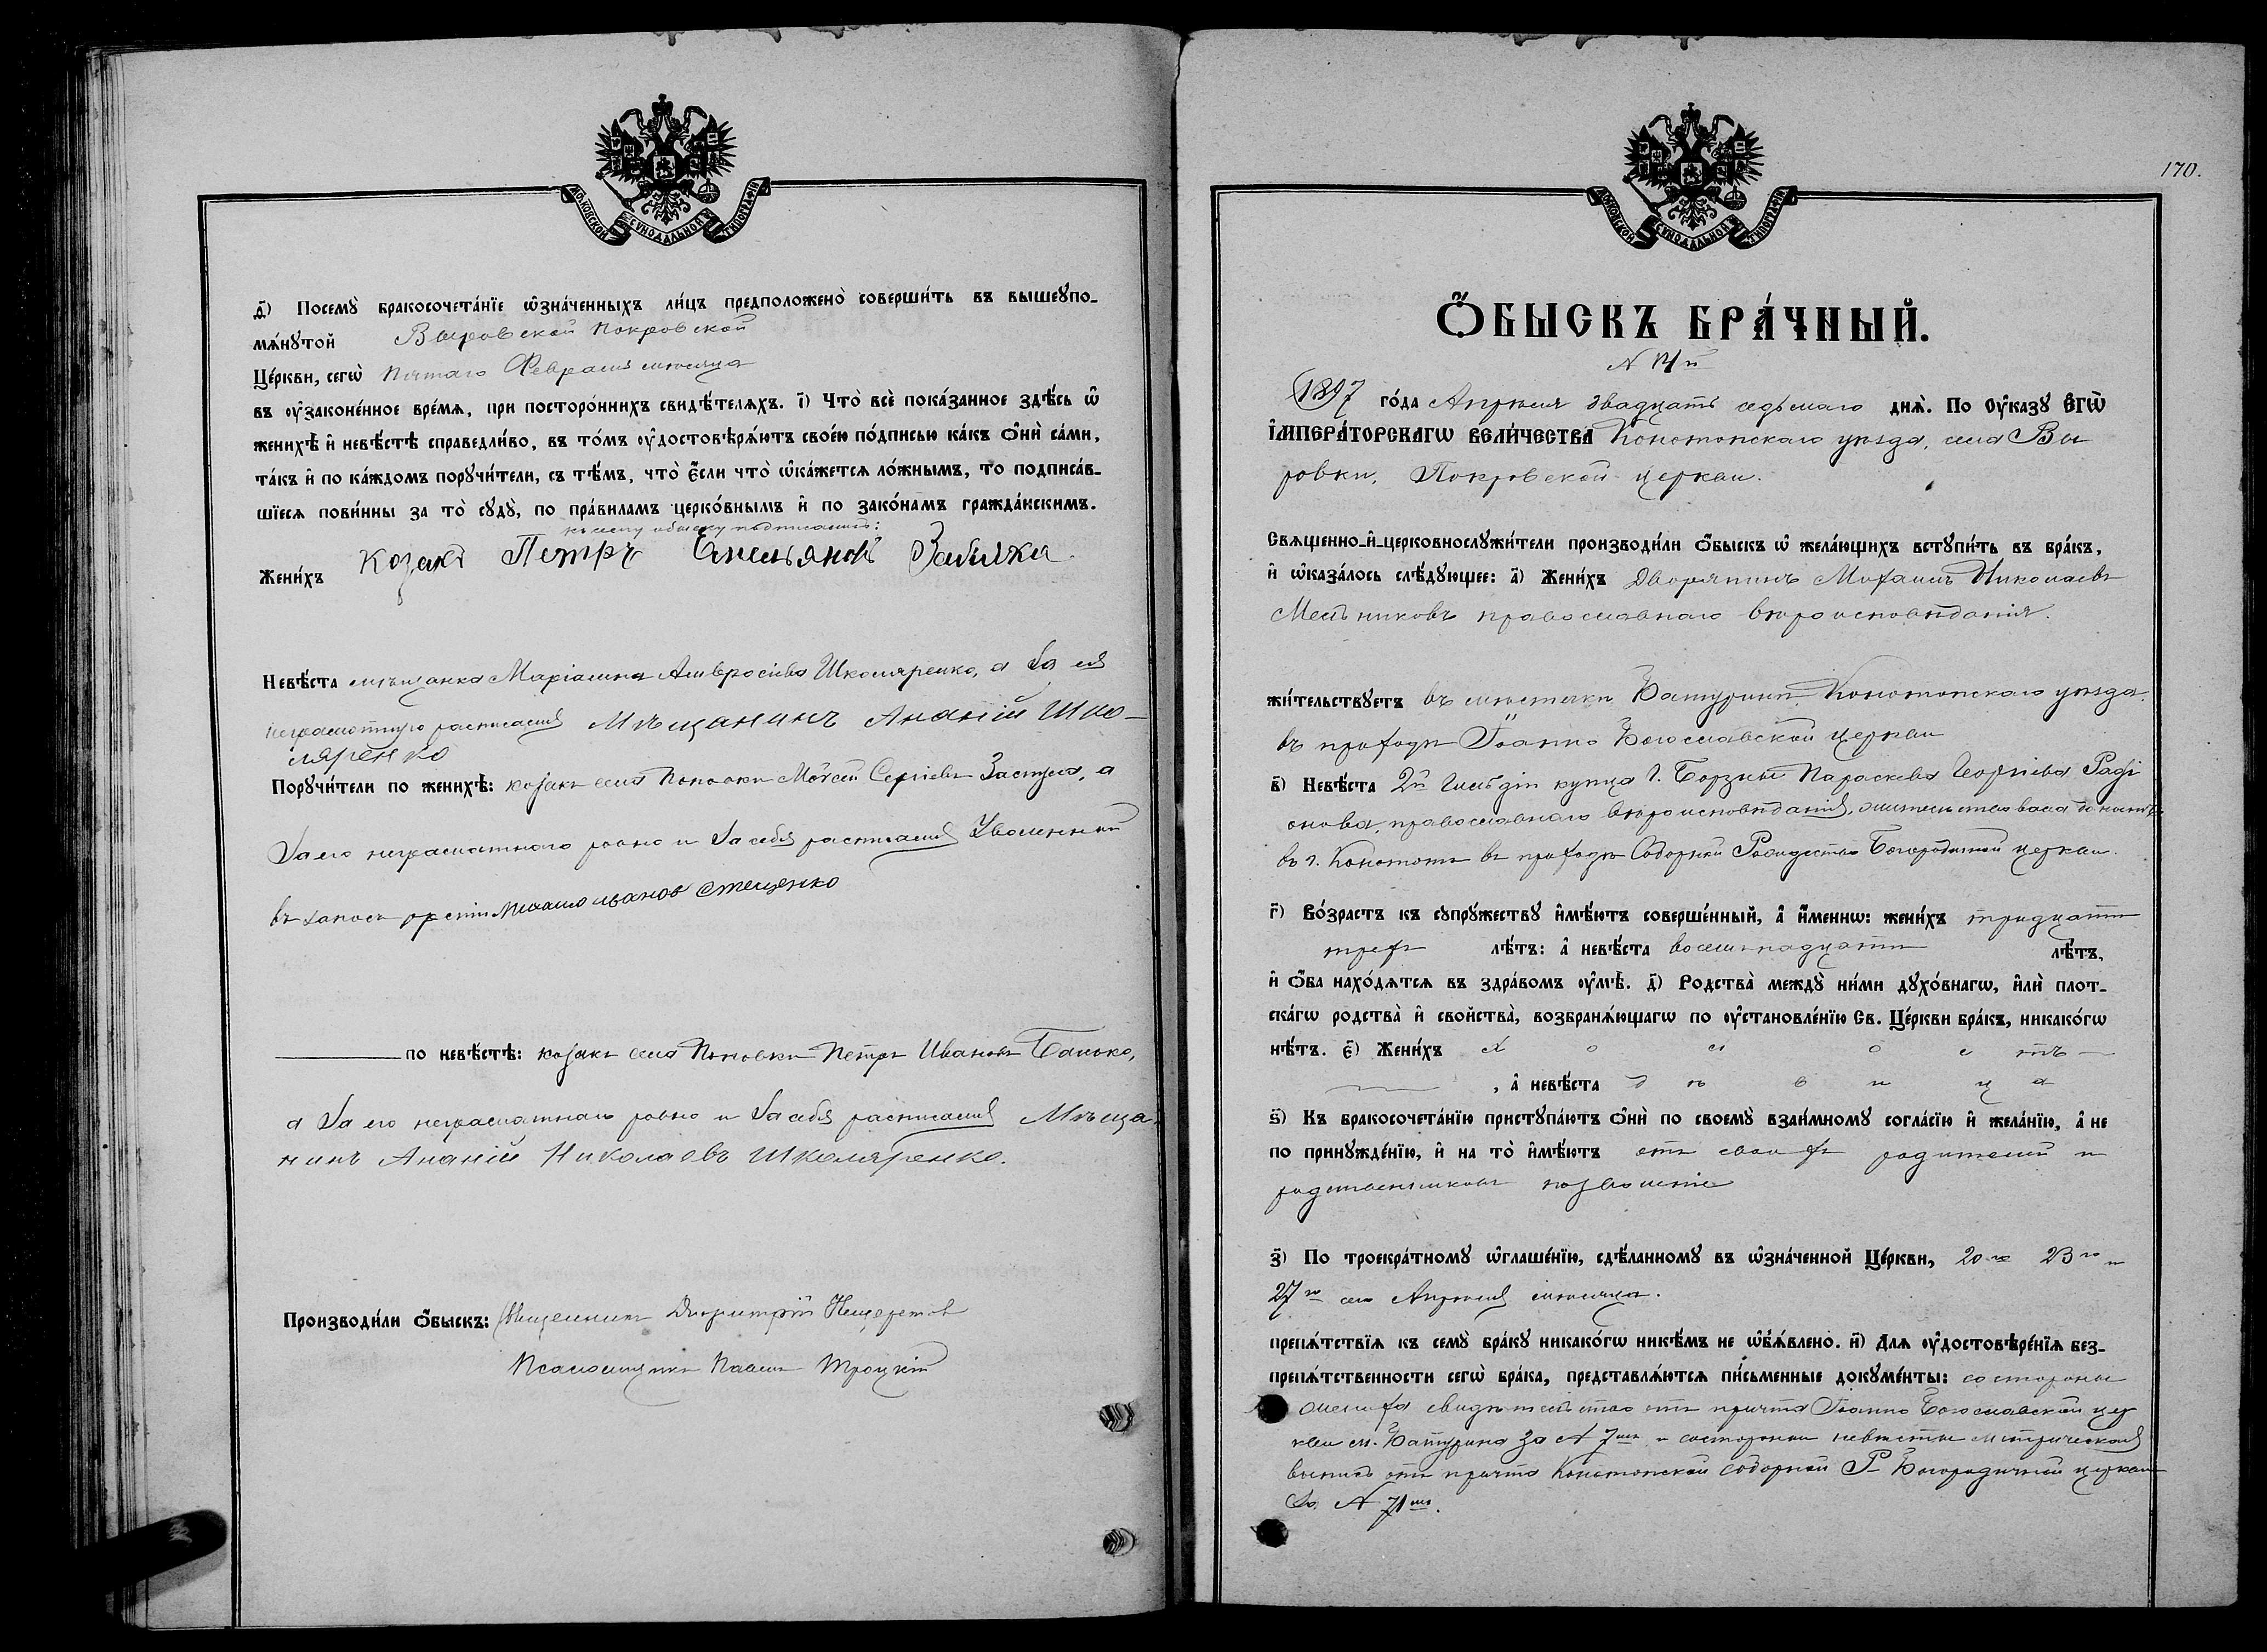 МОСКОВСКОЙ СУНОДАЛЬНОЙ ТИПОГРАФІИ
д҃) Посемꙋ̀ бракосочета́нїе ѡ҆зна́ченныхъ ли́цъ предположено̀ соверши́ть въ вышеꙋпо-
мѧ́нꙋтой Выровской Покровской
Це́ркви, сегѡ̀ пятаго Февраля мѣсяца
въ ᲂу҆законе́нное вре́мѧ, при посторо́ннихъ свидѣ́телѧхъ. і҃) Что̀ всѐ пока́занное здѣ́сь ѡ҆
женихѣ̀ и҆ невѣ́стѣ справедли́во, въ то́мъ ᲂу҆достовѣрѧ́ютъ свое́ю по́дписью ка́къ ѻ҆нѝ са́ми,
та́къ и҆ по ка́ждомъ порꙋчи́тели, съ тѣ́мъ, что̀ є҆́сли что̀ ѡ҆ка́жетсѧ ло́жнымъ, то подписа́в-
шїесѧ пови́нны за то̀ сꙋдꙋ̀, по пра́виламъ церко́внымъ и҆ по зако́намъ гражда́нскимъ.
къ сему обыску подписались:
Жени́хъ Козакъ Петръ Емельяновъ Забилка
Невѣ́ста мѣщанка Маріамна Амвросіева Школяренко, а за нея
неграмотную росписался Мѣщанинъ Ананій Шко-
ляренко
Порꙋчи́тели по женихѣ̀: козакъ села Поповки Моѵсей Сергіевъ Заступа, а
За его неграмотного ровно и За себя расписался Уволенный
въ запасъ арміи Иванов Стеценко
по невѣ́стѣ: козакъ села Поповки Петръ Ивановъ Банько,
а За его неграмотнаго ровно и За себя расписался Мѣща-
нинъ Ананій Николаевъ Школяренко.
Производи́ли ѻ҆́быскъ: Священникъ Димитрій Нещеретов
Псаломщикъ Павелъ Троцкій
170.
МОСКОВСКОЙ СУНОДАЛЬНОЙ ТИПОГРАФІИ
Ѻ҆́БЫСКЪ БРА́ЧНЫЙ.
N 14й
1897 го́да Апрѣля двадцать седьмаго днѧ̀. По Оу҆казꙋ Є҆ГѠ̀
І҆МПЕРА́ТОРСКАГѠ ВЕЛИ́ЧЕСТВА Конотопскаго уѣзда, села Вы
ровки, Покровской церкви.
Свѧщенно-и҆-церковнослꙋжи́тели производи́ли ѻ҆́быскъ ѡ҆ жела́ющихъ встꙋпи́ть въ бра́къ,
и҆ ѡ҆каза́лось слѣ́дꙋющее: а҃) Жени́хъ Дворянинъ Михаилъ Николаевъ
Мельниковъ православнаго вѣроисповѣданія.
жи́тельствꙋетъ въ мѣстечкѣ Батуринѣ Конотопскаго уѣзда
въ приходѣ Іоанно Богословской церкви
в҃) Невѣ́ста 2й Гильдіи купца г. Борзны Параскева Георгіева Раді
онова, православнаго вѣроисповѣданія, жительствовала донынѣ
въ г. Конотопѣ въ приходѣ Соборной Рождество Богородичной церкви.
г҃) Во́зрастъ къ сꙋпрꙋ́жествꙋ и҆мѣ́ютъ соверше́нный, а҆ и҆́меннѡ: жени́хъ тридцати
трехъ лѣ́тъ: а҆ невѣ́ста восемнадцати лѣ́тъ,
и҆ ѻ҆́ба нахо́дѧтсѧ въ здра́вомъ ᲂу҆мѣ̀. д҃) Родства̀ междꙋ̀ ни́ми дꙋхо́внагѡ, и҆лѝ плот-
ска́гѡ родства̀ и҆ свойства̀, возбранѧ́ющагѡ по ᲂу҆становле́нїю Св. Це́ркви бра́къ, никако́гѡ
нѣ́тъ. є҃) Жени́хъ х о л о с тъ
, а҆ невѣ́ста д ѣ в и ц а
ѕ҃) Къ бракосочета́нїю пристꙋпа́ютъ ѻ҆нѝ по своемꙋ̀ взаи́мномꙋ согла́сїю и҆ жела́нїю, а҆ не
по принꙋжде́нїю, и҆ на то̀ и҆мѣ́ютъ отъ своихъ родителей и
родственниковъ позволеніе
з҃) По троекра́тномꙋ ѡ҆глаше́нїю, сдѣ́ланномꙋ въ ѡ҆зна́ченной Це́ркви, 20го 23го и
27го сего Апрѣля мѣсяца.
препѧ́тствїѧ къ семꙋ̀ бра́кꙋ никако́гѡ никѣ́мъ не ѡ҆б̾ѧ́влено. и҃) Длѧ ᲂу҆достовѣре́нїѧ без-
препѧ́тственности сегѡ̀ бра́ка, представлѧ́ютсѧ пи́сьменные докꙋме́нты: со стороны
жениха свидѣтельство отъ причта Іоанно Богословской цер
кви м. Батурина за N 7мъ и со стороны невѣсты метрическая
выпись отъ причта Конотопской соборной Р- Богородичной церкви
за N 71мъ.